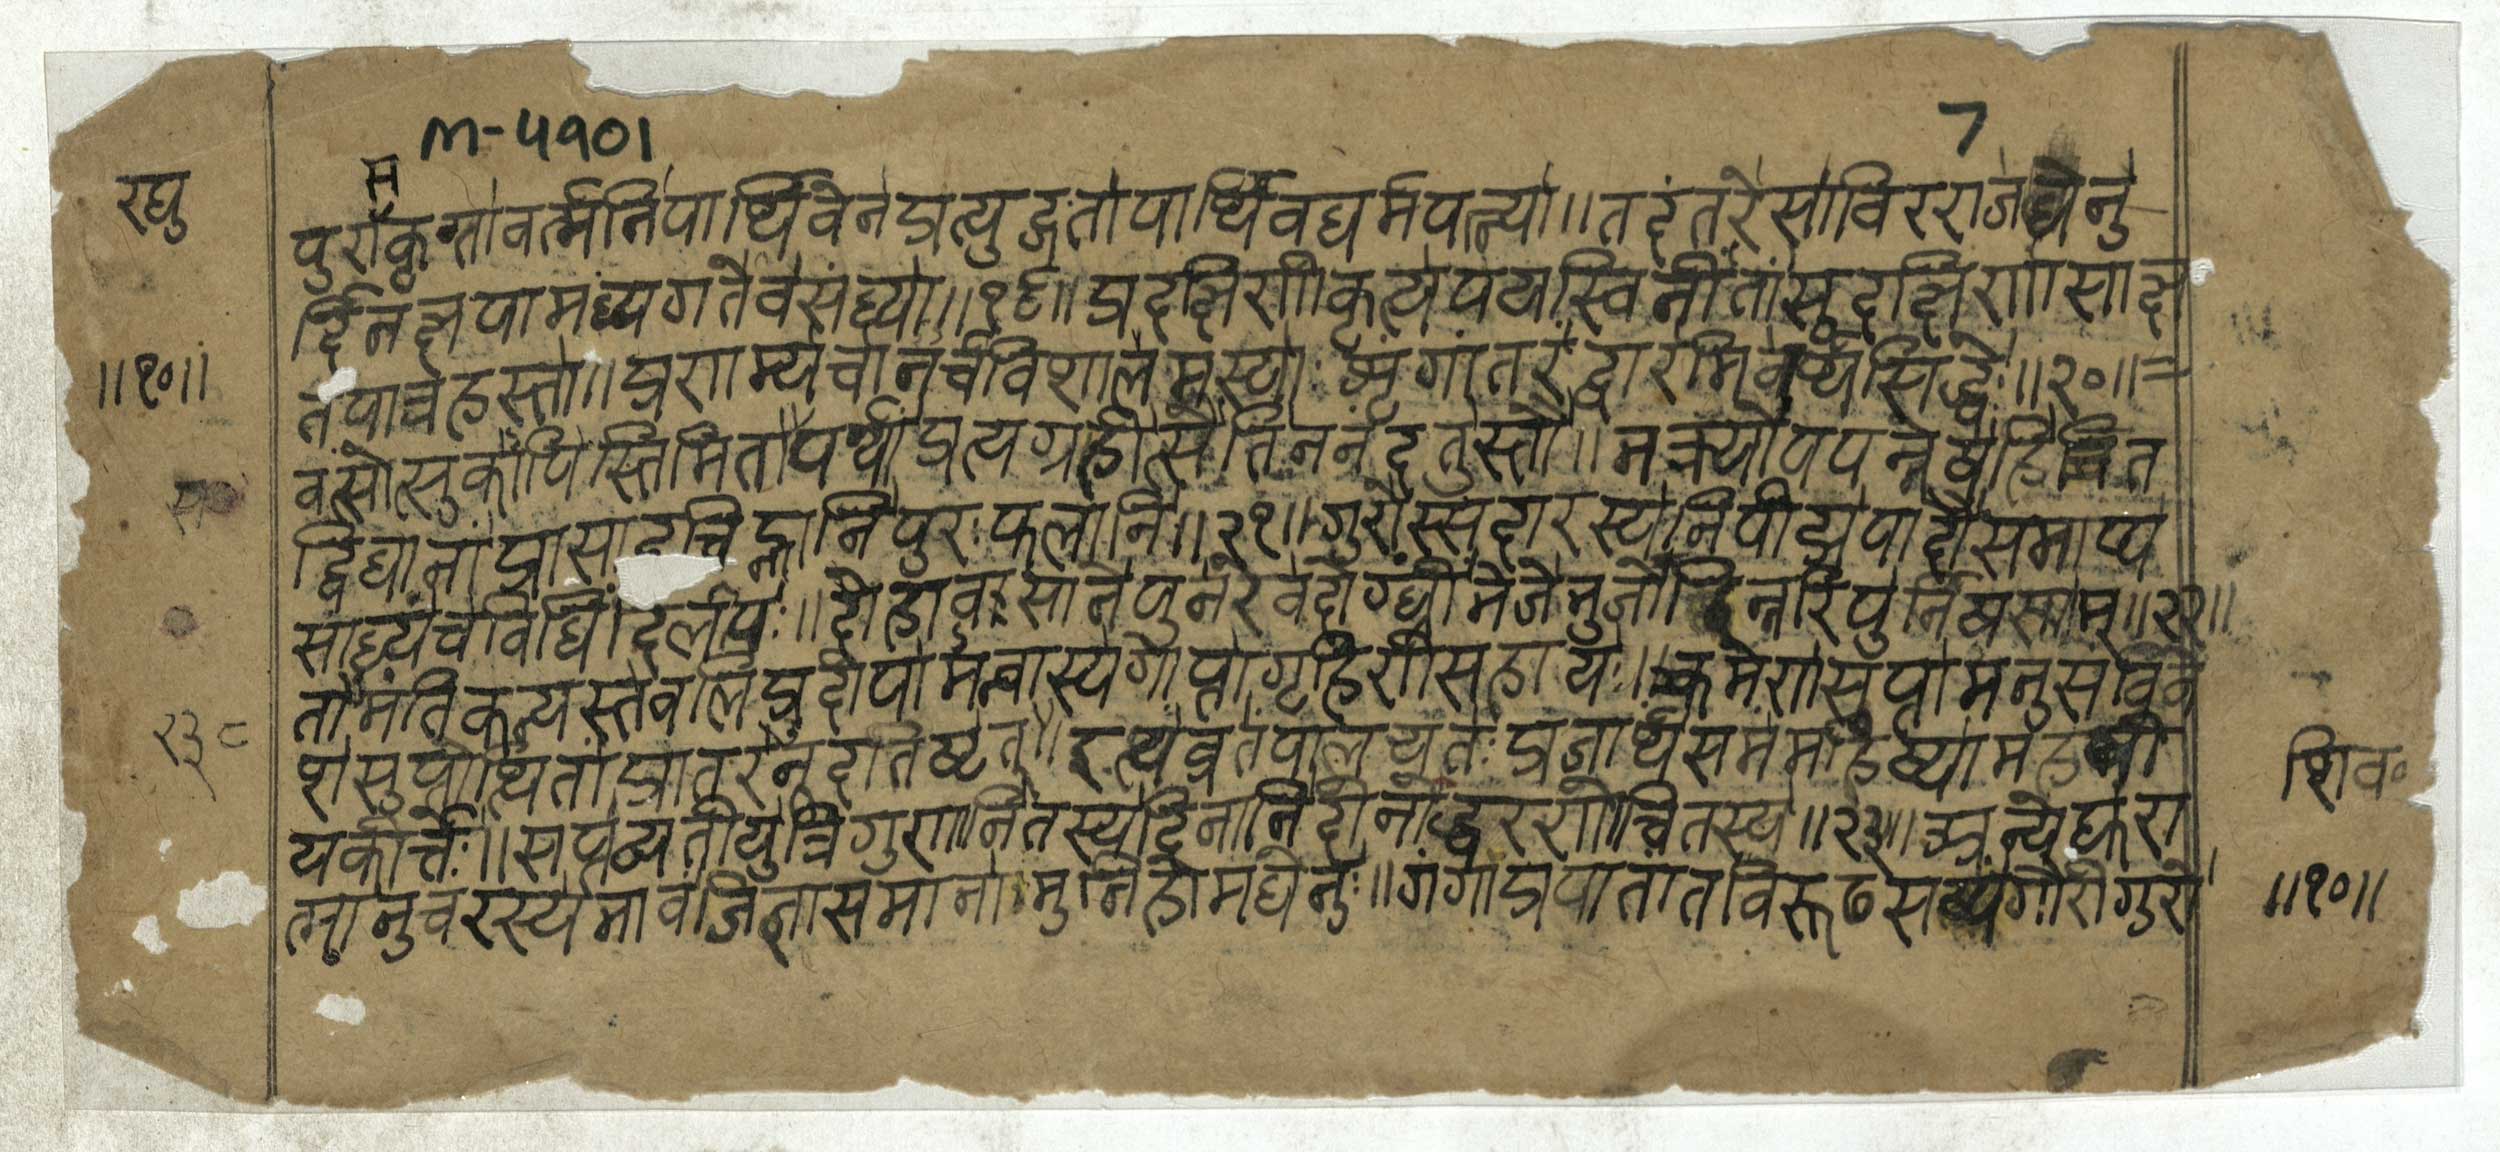 M-५१०१
7
रघु
स
पुराकृतावर्त्मनिपार्थिवेनप्रत्युद्गतापार्थिवधर्मपत्न्या॥तदंतरेसाविरराजधेनु
र्द्दिनक्षपामध्यगतेवसंध्या॥१९॥प्रदक्षिणीकृत्यपयस्विनींतांसुदक्षिणासाक्ष
तपात्रहस्ता॥प्रणम्यचानर्चविशालमस्याःशृंगांतरंद्वारमिवार्थसिद्धेः॥२०॥=
॥१०॥
वत्सोत्सुकापिस्तिमितासपर्यांप्रत्यग्रहीत्सेतिननंदतुस्तौ॥भक्त्योपपन्नेषुहित
द्विधानांप्रसादचिह्नानिपुरःफलानि॥२१॥गुरोस्सदारस्यनिपीड्यपादौसमाप्य
सांध्यंचविधिंदिलीपः॥दोहावसानेपुनरेवदोग्ध्रीमेजेभुजोच्छिन्नरिपुर्निषसाम्॥२२॥
तामंतिकन्यस्तबलिप्रदीपामन्वास्यगोप्तागृहिणीसहायः॥क्रमेणसुप्तामनुसंविवे
शसुप्तोत्थितांप्रातरनूदतिष्टत्॥इत्थंव्रतंपालयतःप्रजार्थंसमंमहिष्यामहनी
२३=
शिव॰
यकीर्त्तेः॥सप्तव्यतीयुस्त्रिगुणानितस्यदिनानिदीनोद्धरणोचितस्य॥२३॥अन्येद्युरा
त्मानुचरस्यभावंजिज्ञासमानामुनिहोमधेनुः॥गंगाप्रपातांतविरूढसष्पंगौरीगुरो
॥१०॥